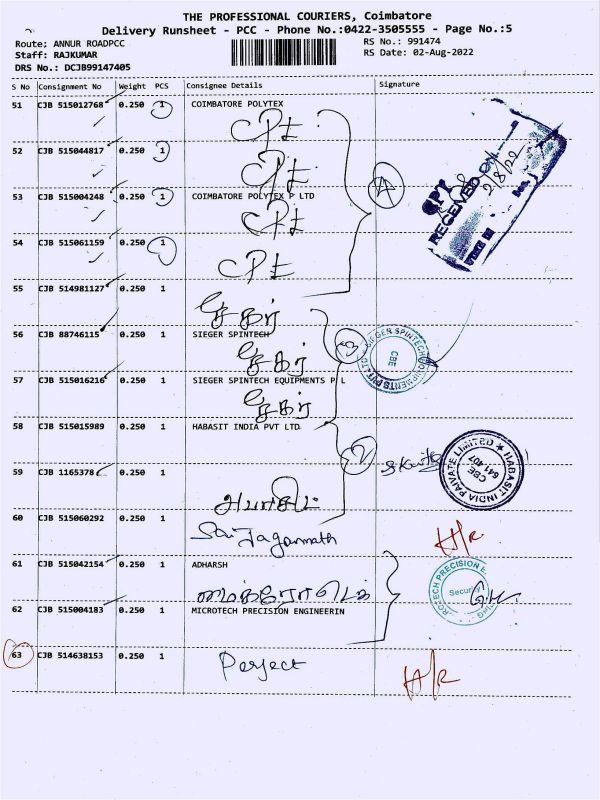 THE PROFESSIONAL COURIERS, Coimbatore
Delivery Runsheet - PCC - Phone No.:0422-3505555 - Page No.:5
Route; ANNUR ROADPCC
Staff: RAJKUMAR
DRS No.: DCJB99147405
RS No.: 991474
RS Date: 02-Aug-2022
S No Consignment No Weight PCS Consignee Details Signature
51 CJB 515012768 0.250 1 COIMBATORE POLYTEX
CPL
52 CJB 515044817 0.250 1
CPL
53 CJB 515004248 0.250 1 COIMBATORE POLYTEX P LTD
CPL
54 CJB 515061159 0.250 1
CPL
CPL
RECEIVED ON
2/8/22
TIME IN
55 CJB 514981127 0.250 1
சேகர்
56 CJB 88746115 0.250 1 SIEGER SPINTECH
சேகர்
57 CJB 515016216 0.250 1 SIEGER SPINTECH EQUIPMENTS P L
சேகர்
3
SIEGER SPINTECH EQUIPMENTS PVT LTD
CBE
58 CJB 515015989 0.250 1 HABASIT INDIA PVT LTD
59 CJB 1165378 0.250 1
2
HABASIT INDIA PRIVATE LIMITED
CBE
641 407
60 CJB 515060292 0.250 1 Sai Jagannath
H/R
61 CJB 515042154 0.250 1 ADHARSH
62 CJB 515004183 0.250 1 MICROTECH PRECISION ENGINEERIN
ROTECH PRECISION E
Security
63 CJB 514638153 0.250 1 Perfect
H/R